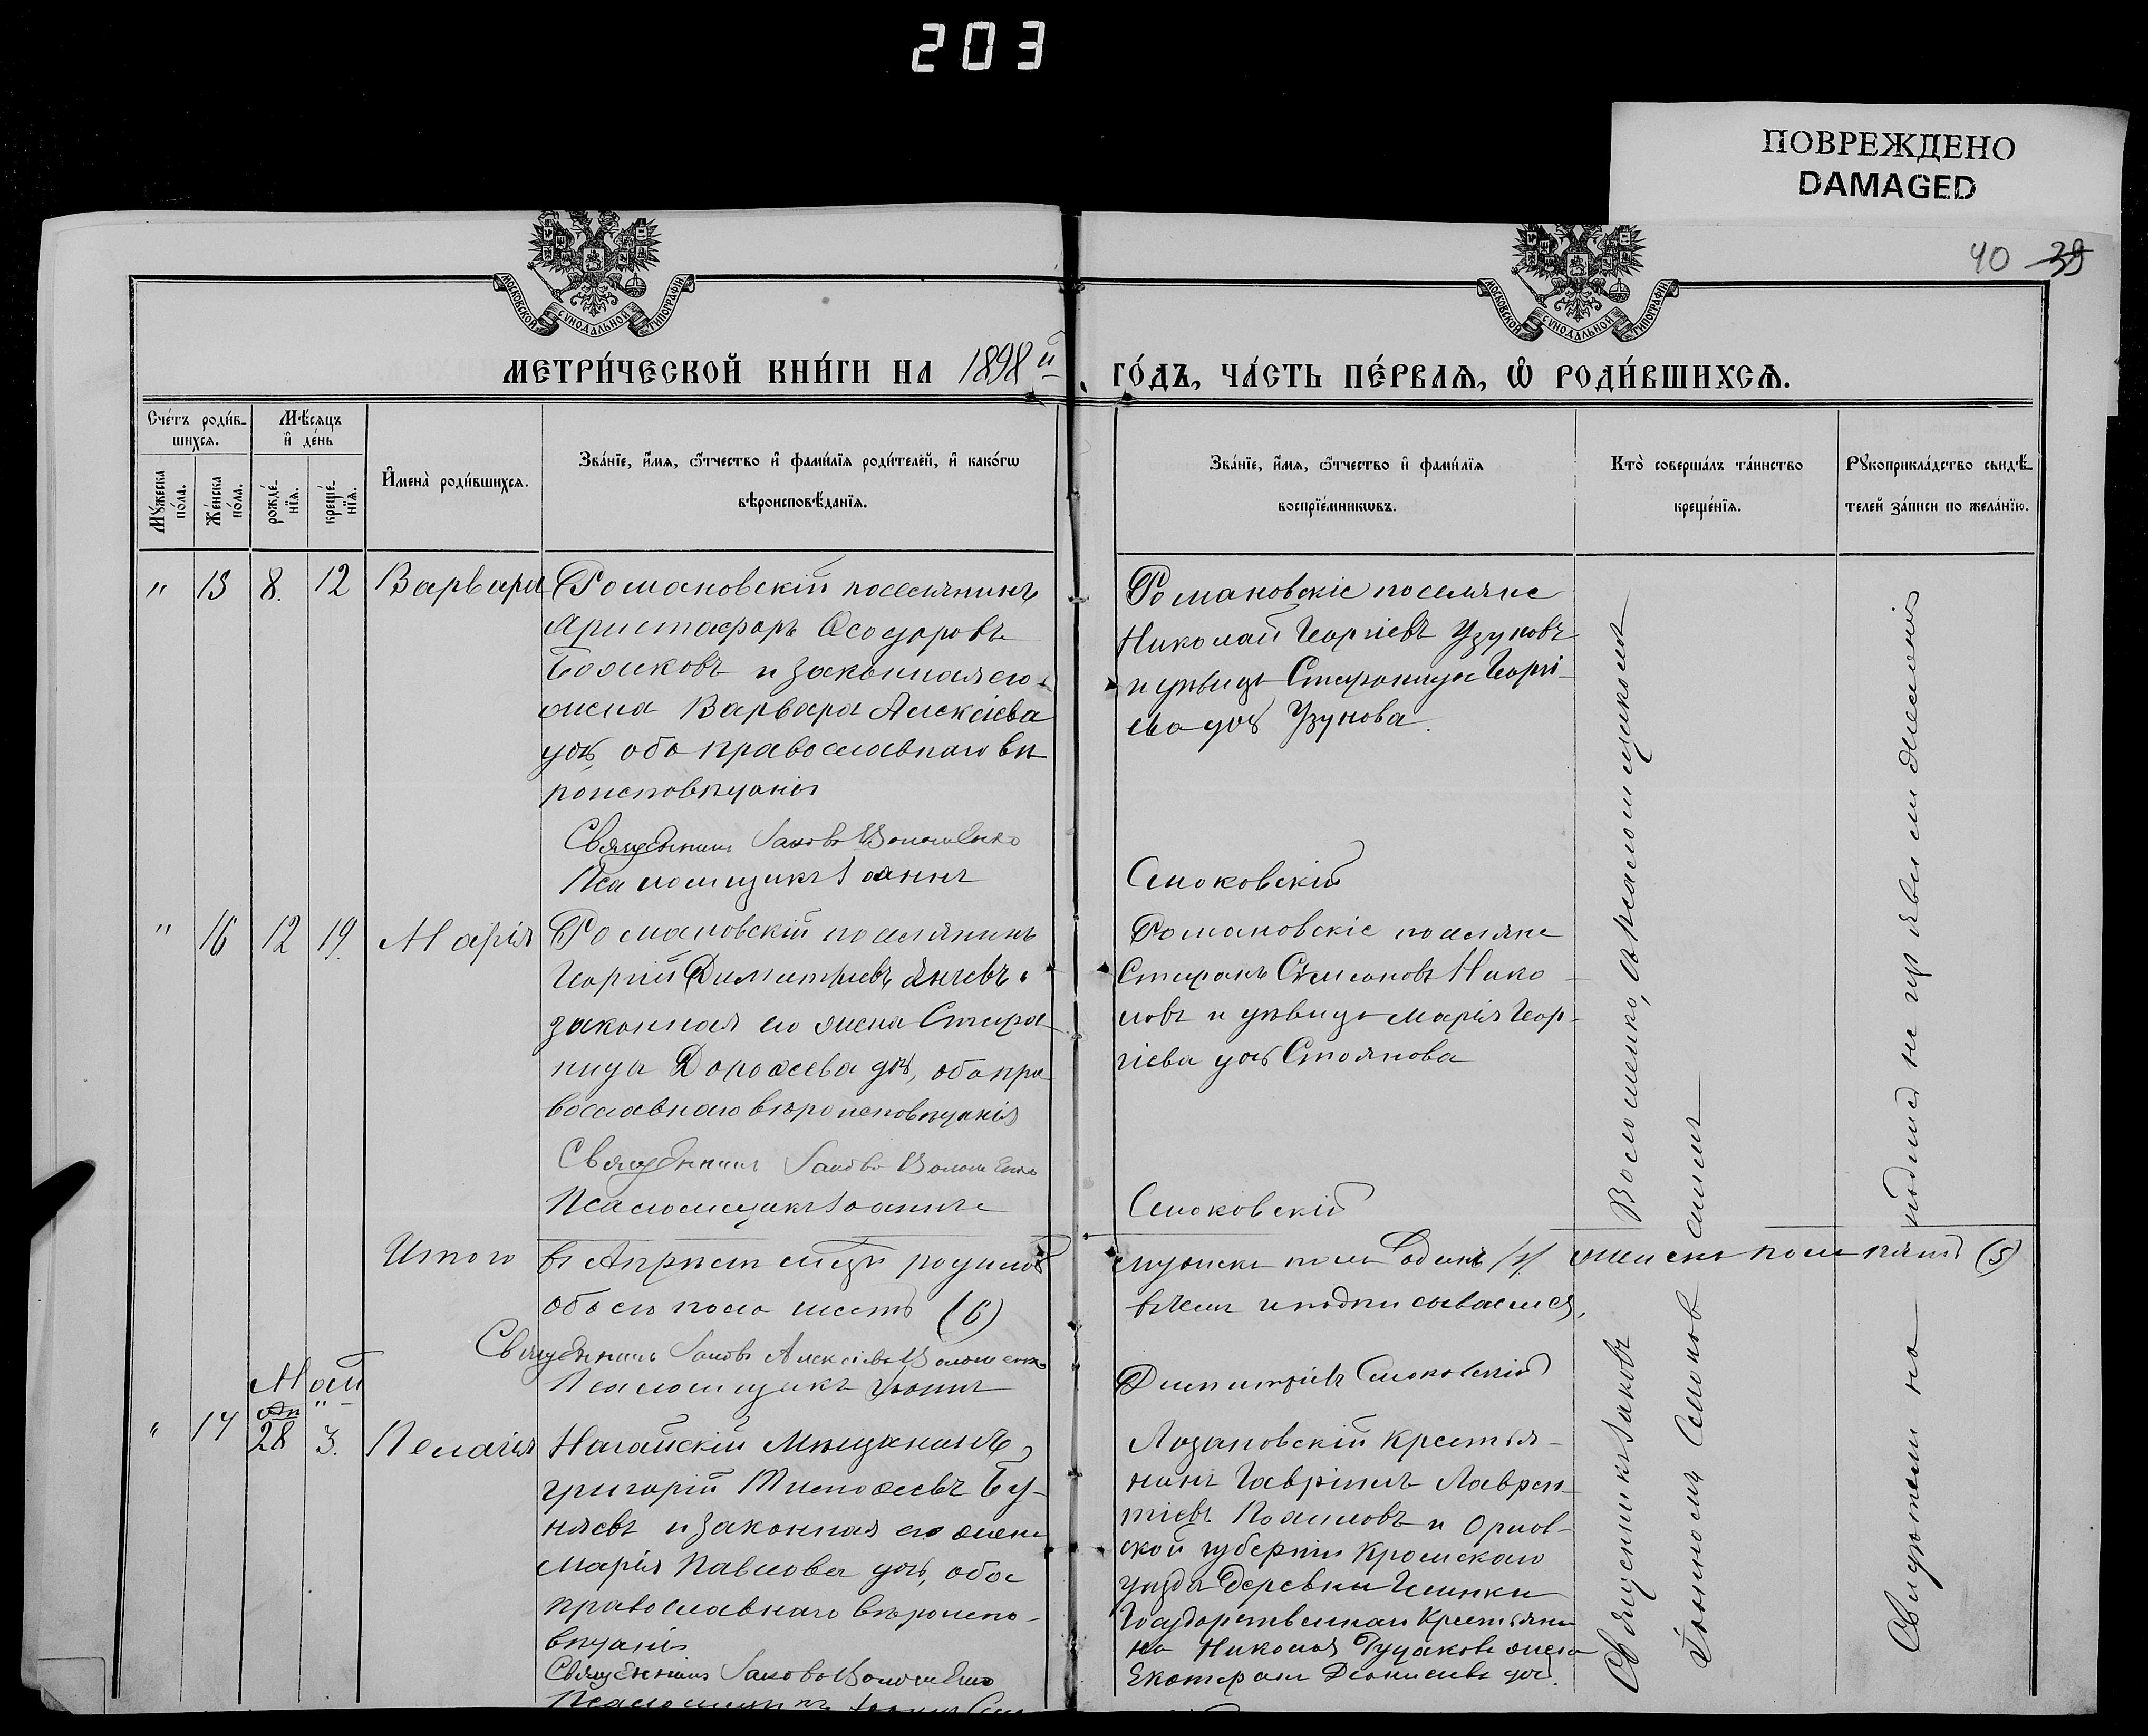 203
ПОВРЕЖДЕНО
DAMAGED
40 39
МОСКОВСКОЙ СѴНОДАЛЬНОЙ ТИПОГРАФІИ
МОСКОВСКОЙ СѴНОДАЛЬНОЙ ТИПОГРАФІИ
МЕТРИ́ЧЕСКОЙ КНИ́ГИ НА 1898й
ГО́ДЪ, ЧА́СТЬ ПЕ́РВАѦ, Ѡ҆ РОДИ́ВШИХСѦ.
Сче́тъ роди́в-
шихсѧ.
Мѣ́сѧцъ
и҆ де́нь
Мꙋ́жеска
по́ла.
Же́нска
по́ла.
рожде́-
нїѧ.
креще́-
нїѧ.
И҆мена̀ роди́вшихсѧ.
Зва́нїе, и҆́мѧ, ѻ҆́тчество и҆ фами́лїѧ роди́телей, и҆ како́гѡ
вѣроисповѣ́данїѧ.
Зва́нїе, и҆́мѧ, ѻ҆́тчество и҆ фами́лїѧ
воспрїе́мникѡвъ.
Кто̀ соверша́лъ та́инство
креще́нїѧ.
Рꙋкоприкла́дство свидѣ́-
телей за́писи по жела́нїю.
" 15 8. 12 Варвара
Романовскій поселянинъ
Аристафоръ Ѳеодоровъ
Бояжовъ и законная его
жена Варвара Алексіева
дочь, оба православнаго вѣ
роисповѣданія
Священникъ Іаковъ Волошенко
Псаломщикъ Іоаннъ
Романовскіе поселяне
Николай Георгіевъ Узуновъ
и дѣвица Георгі-
ева дочь Узунова.
Смоковскій
" 16 12 19. Марія
Романовскій поселянинъ
Георгій Димитріевъ Янчевъ
законная его жена Стира
ница Дороѳеева дочь, оба пра
вославнаго вѣроисповѣданія
Священникъ Іаковъ Волошенко
Псаломщикъ Іоаннъ
Романовскіе поселяне
Симеоновъ Нико
ловъ и дѣвица Марія Геор-
гіева дочь Стоянова
Смоковскій
Итого въ Апрѣлѣ мѣсяцѣ родилось
обоего пола шесть (6)
Священникъ Іаковъ Алексіевъ Волошенко
Псаломщикъ Іоаннъ
мужска пола одинъ (1) женска пола пять (5)
въ чемъ и подписываемся,
Димитріевъ Смоковскій
Май
" 17 28 3. Пелагія
Ногайскій Мѣщанинъ
Григорій Тимоѳеевъ Бу-
няевъ и законная его жена
Марія Павлова дочь, обое
православнаго вѣроиспо-
вѣданія
Священникъ Іаковъ Волошенко
Псаломщикъ Іоаннъ
Лозановскій Крестья-
нинъ Гавріилъ Лаврен
тіевъ и Орлов-
ской губерніи Кромскаго
уѣзда Деревни Глинки
Государственнаго Крестьяни
на Николая жена
Екатерина Діонисіева дочь.
Священникъ Іаковъ
Волошенко, съ псаломщикомъ
Іоанномъ Смоков
скимъ
Свидѣтели но
подписи не изъявили желанія